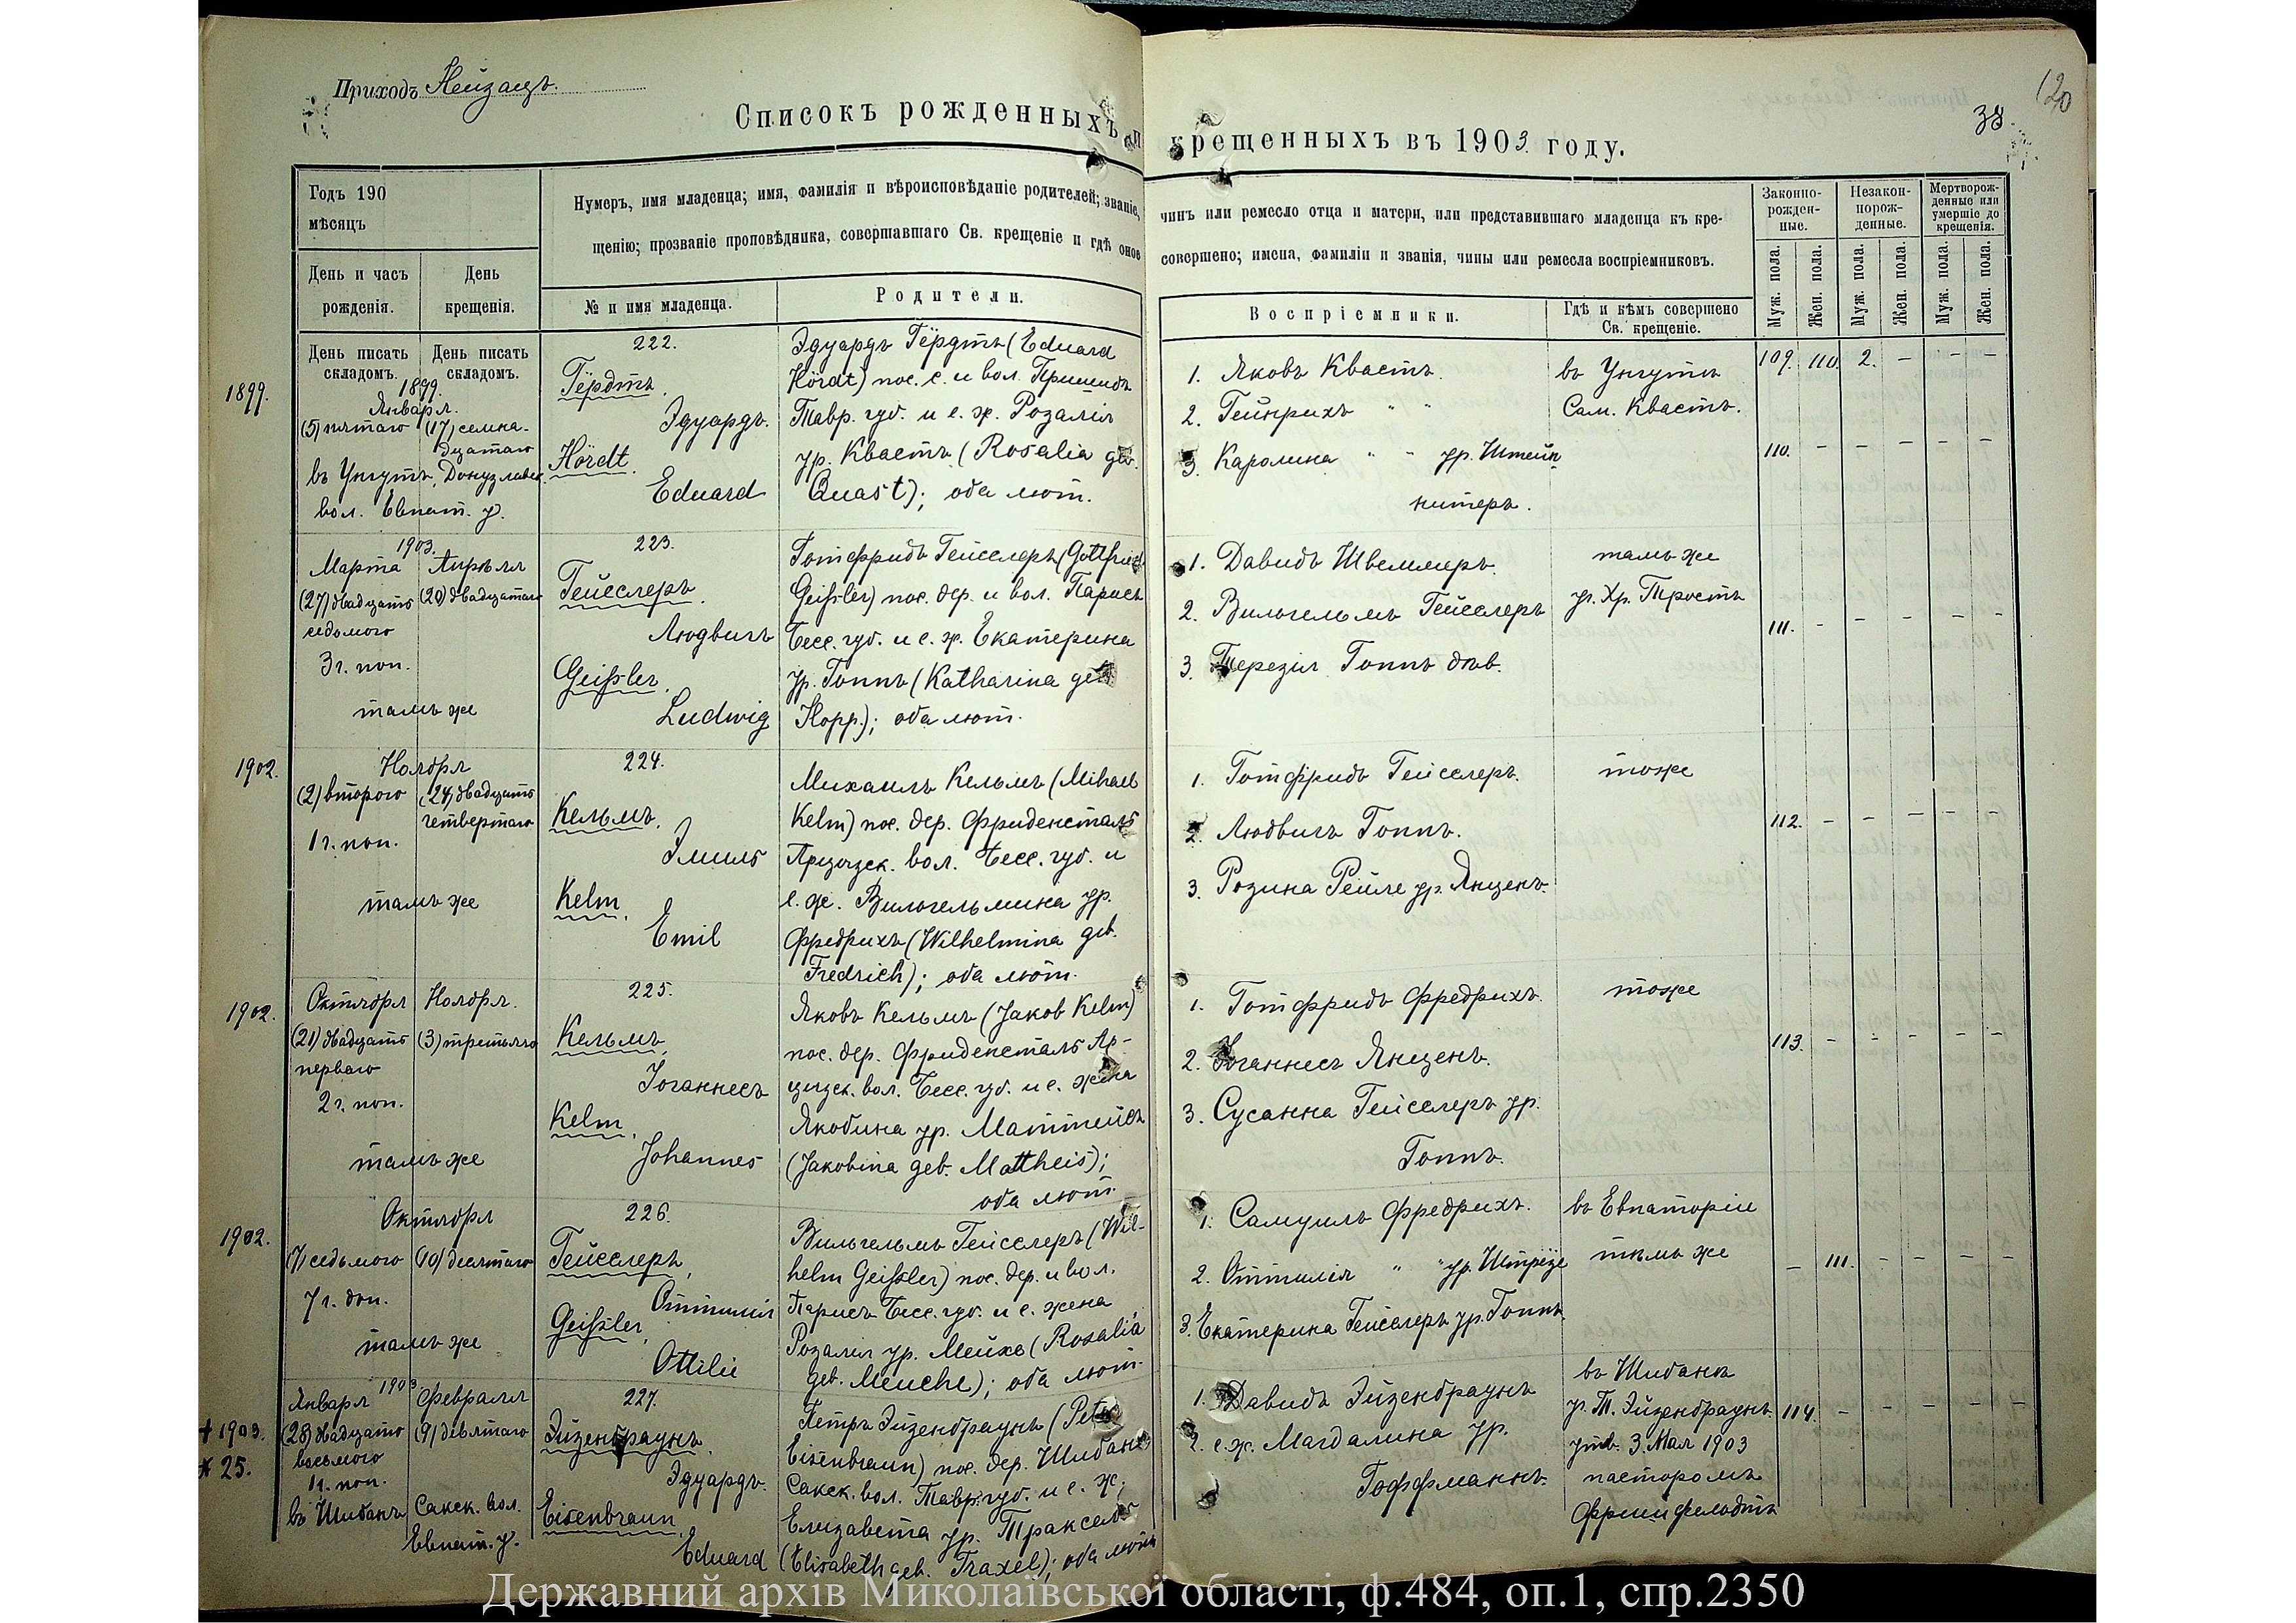 Приходъ Нейзацъ.
120
38.
Списокъ рожденныхъ и крещенныхъ въ 1903 году.
Годъ 190
мѣсяцъ
Нумеръ, имя младенца; имя, фамилія и вѣроисповѣданіе родителей; званіе, чинъ или ремесло отца и матери, или представившаго младенца къ кре-
щенію; прозваніе проповѣдника, совершавшаго Св. крещеніе и гдѣ оное совершено; имена, фамиліи и званія, чины или ремесла воспріемниковъ.
Законно-
рожден-
ные.
Незакон-
норож-
денные.
Мертворож-
денные или
умершіе до
крещенія.
День и часъ
рожденія.
День
крещенія.
№ и имя младенца.
Родители.
Воспріемники.
Гдѣ и кѣмъ совершено
Св. крещеніе.
Муж. пола.
Жен. пола.
Муж. пола.
Жен. пола.
Муж. пола.
Жен. пола.
День писать
складомъ.
День писать
складомъ.
1899.
1899.
Января.
(5) пятаго
(17) семна-
дцатаго
въ Унгутъ, Донузлавск.
вол. Евпат. у.
222.
Гёрдтъ.
Эдуардъ.
Hördt.
Eduard
Эдуардъ Гёрдтъ (Eduard
Hördt) пос. с. и вол. Пришибъ
Тавр. губ. и е. ж. Розалія
ур. Квастъ (Rosalia geb.
Quast); оба лют.
1. Яковъ Квастъ.
2. Гейнрихъ " "
3. Каролина " " ур. Штейн
нитеръ.
въ Унгутъ
Сам. Квастъ.
109. 110. 2. – – –
110. – – – – –
1903.
Марта
Апрѣля
(27) двадцать
седьмого
(20) двадцатаго
3 ч. поп.
тамъ же
223.
Гейслеръ.
Людвигъ
Geißler.
Ludwig
Готфридъ Гейслеръ (Gottfried
Geißler) пос. дер. и вол. Парисъ
Бесс. губ. и е. ж. Екатерина
ур. Гоппъ (Katharina geb.
Hopp.); оба лют.
1. Давидъ Швеммеръ.
2. Вильгельмъ Гейслеръ
3. Терезія Гоппъ дѣв.
тамъ же
у. Хр. Тростъ
111. – – – – –
1902.
Ноября
(2) второго
(24) двадцать
четвертаго
1 ч. поп.
тамъ же
224.
Кельмъ.
Эмиль
Kelm.
Emil
Михаилъ Кельмъ (Mihael
Kelm) пос. дер. Фриденсталь
Арцызск. вол. Бесс. губ. и
е. ж. Вильгельмина ур.
Фредрихъ (Wilhelmina geb.
Fredrich); оба лют.
1. Готфридъ Гейслеръ.
2. Людвигъ Гоппъ.
3. Розина Рейле ур. Янценъ.
тоже
112. – – – – –
1902.
Октября
Ноября.
(21) двадцать
перваго
(3) третьяго
2 ч. поп.
тамъ же
225.
Кельмъ.
Іоганнесъ
Kelm.
Johannes
Яковъ Кельмъ (Jakob Kelm)
пос. дер. Фриденсталь Ар-
цызск. вол. Бесс. губ. и е. жена
Якобина ур. Маттейсъ
(Jakobina geb. Mattheis);
оба лют.
1. Готфридъ Фредрихъ.
2. Іоганнесъ Янценъ.
3. Сусанна Гейслеръ ур.
Гоппъ.
тоже
113. – – – – –
1902.
Октября
(7) седьмого
(10) десятаго
7 ч. доп.
тамъ же
226.
Гейслеръ.
Оттилія
Geißler.
Ottilie
Вильгельмъ Гейслеръ (Wil-
helm Geißler) пос. дер. и вол.
Парисъ Бесс. губ. и е. жена
Розалія ур. Мейхе (Rosalia
geb. Meuche); оба лют.
1. Самуилъ Фредрихъ.
2. Оттилія " " ур. Штрёзе
3. Екатерина Гейслеръ ур. Гоппъ.
въ Евпаторіи
тѣмъ же
– 111. – – – –
1903.
Января
Февраля
+ 1903.
(28) двадцать
восьмого
(9) девятаго
№ 25.
1 ч. поп.
въ Шибанъ Сакск. вол.
Евпат. у.
227.
Эйзенбраунъ.
Эдуардъ.
Eisenbraun.
Eduard
Петръ Эйзенбраунъ (Peter
Eisenbraun) пос. дер. Шибань
Сакск. вол. Тавр. губ. и е. ж.
Елизавета ур. Траксель
(Elisabeth geb. Traxel); оба лют.
1. Давидъ Эйзенбраунъ
2. е. ж. Магдалина ур.
Гоффманнъ.
въ Шибанъ
у. Т. Эйзенбраунъ
утв. 3. Мая 1903
пасторомъ
114. – – – – –
Державний архів Миколаївської області, ф.484, оп.1, спр.2350